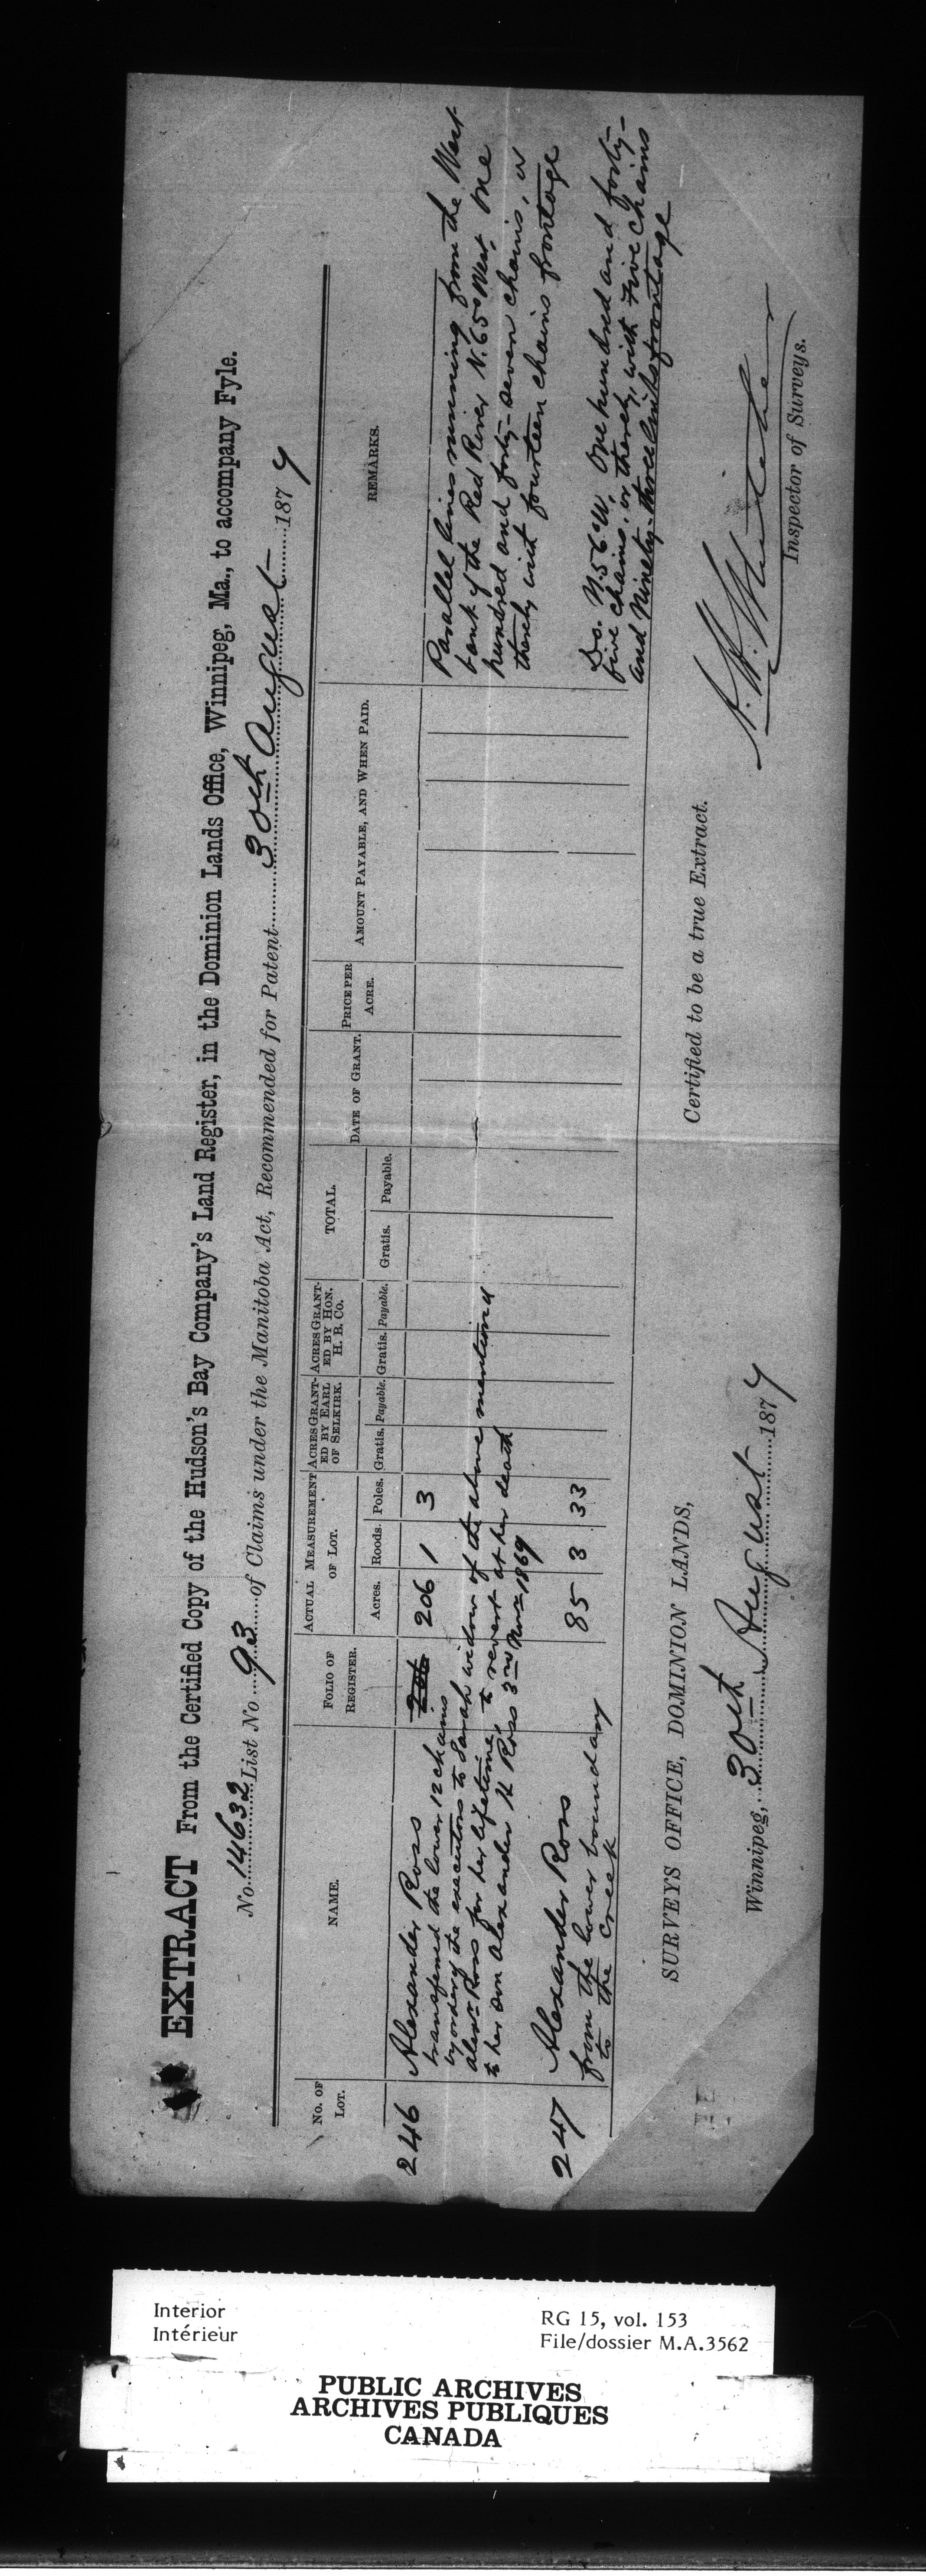 EXTRACT From the Certified Copy of the Hudson's Bay Company's Land Register, in the Dominion Lands Office, Winnipeg, Ma., to accompany Fyle.
No. 14632 List No 93 of Claims under the Manitoba Act, Recommended for Patent 30th August 1877
No. OF LOT.
NAME.
FOLIO OF REGISTER.
ACTUAL MEASUREMENT OF LOT.
Acres. Roods. Poles.
ACRES GRANTED BY EARL OF SELKIRK.
Gratis. Payable.
ACRES GRANTED BY HON. H. B. Co.
Gratis. Payable.
TOTAL.
Gratis. Payable.
DATE OF GRANT.
PRICE PER ACRE.
AMOUNT PAYABLE, AND WHEN PAID.
REMARKS.
246 Alexander Ross 206 206 1 3
transferred the lower 12 chains
by order of the executors to Sarah widow of the above mentioned
Alexr Ross for her lifetime, to revert at her death
to her son Alexander H Ross 3rd Novr 1869
Parallel lines running from the West
bank of the Red River N.65° West, One
hundred and forty-seven chains, or
thereby with fourteen chains frontage
247 Alexander Ross 85 3 33
from the lower boundary
to the Creek
Do. N.56°W. One hundred and forty-
five chains, or thereby, with five chains
and Ninety-three links frontage
SURVEYS OFFICE, DOMINION LANDS,
Winnipeg, 30th August 1877
Certified to be a true Extract.
Inspector of Surveys.
Interior
Intérieur
RG 15, vol. 153
File/dossier M.A.3562
PUBLIC ARCHIVES
ARCHIVES PUBLIQUES
CANADA